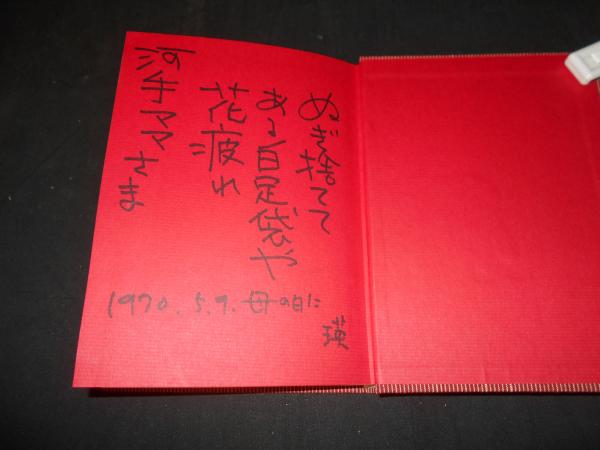 ぬぎ捨てて
ある白足袋や
花疲れ
ママさま
1970.5.9.母の日に
瑛